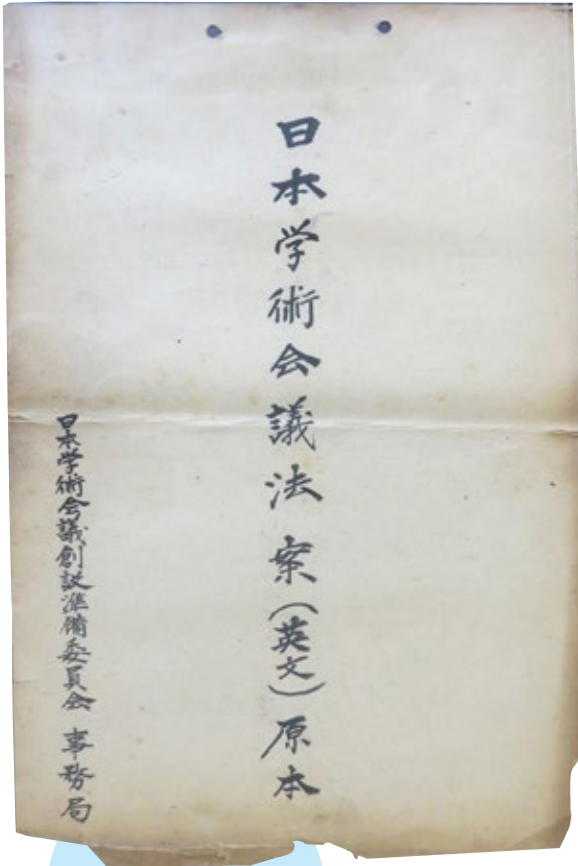 日本学術会議法案(英文)原本
日本学術会議創設準備委員会 事務局